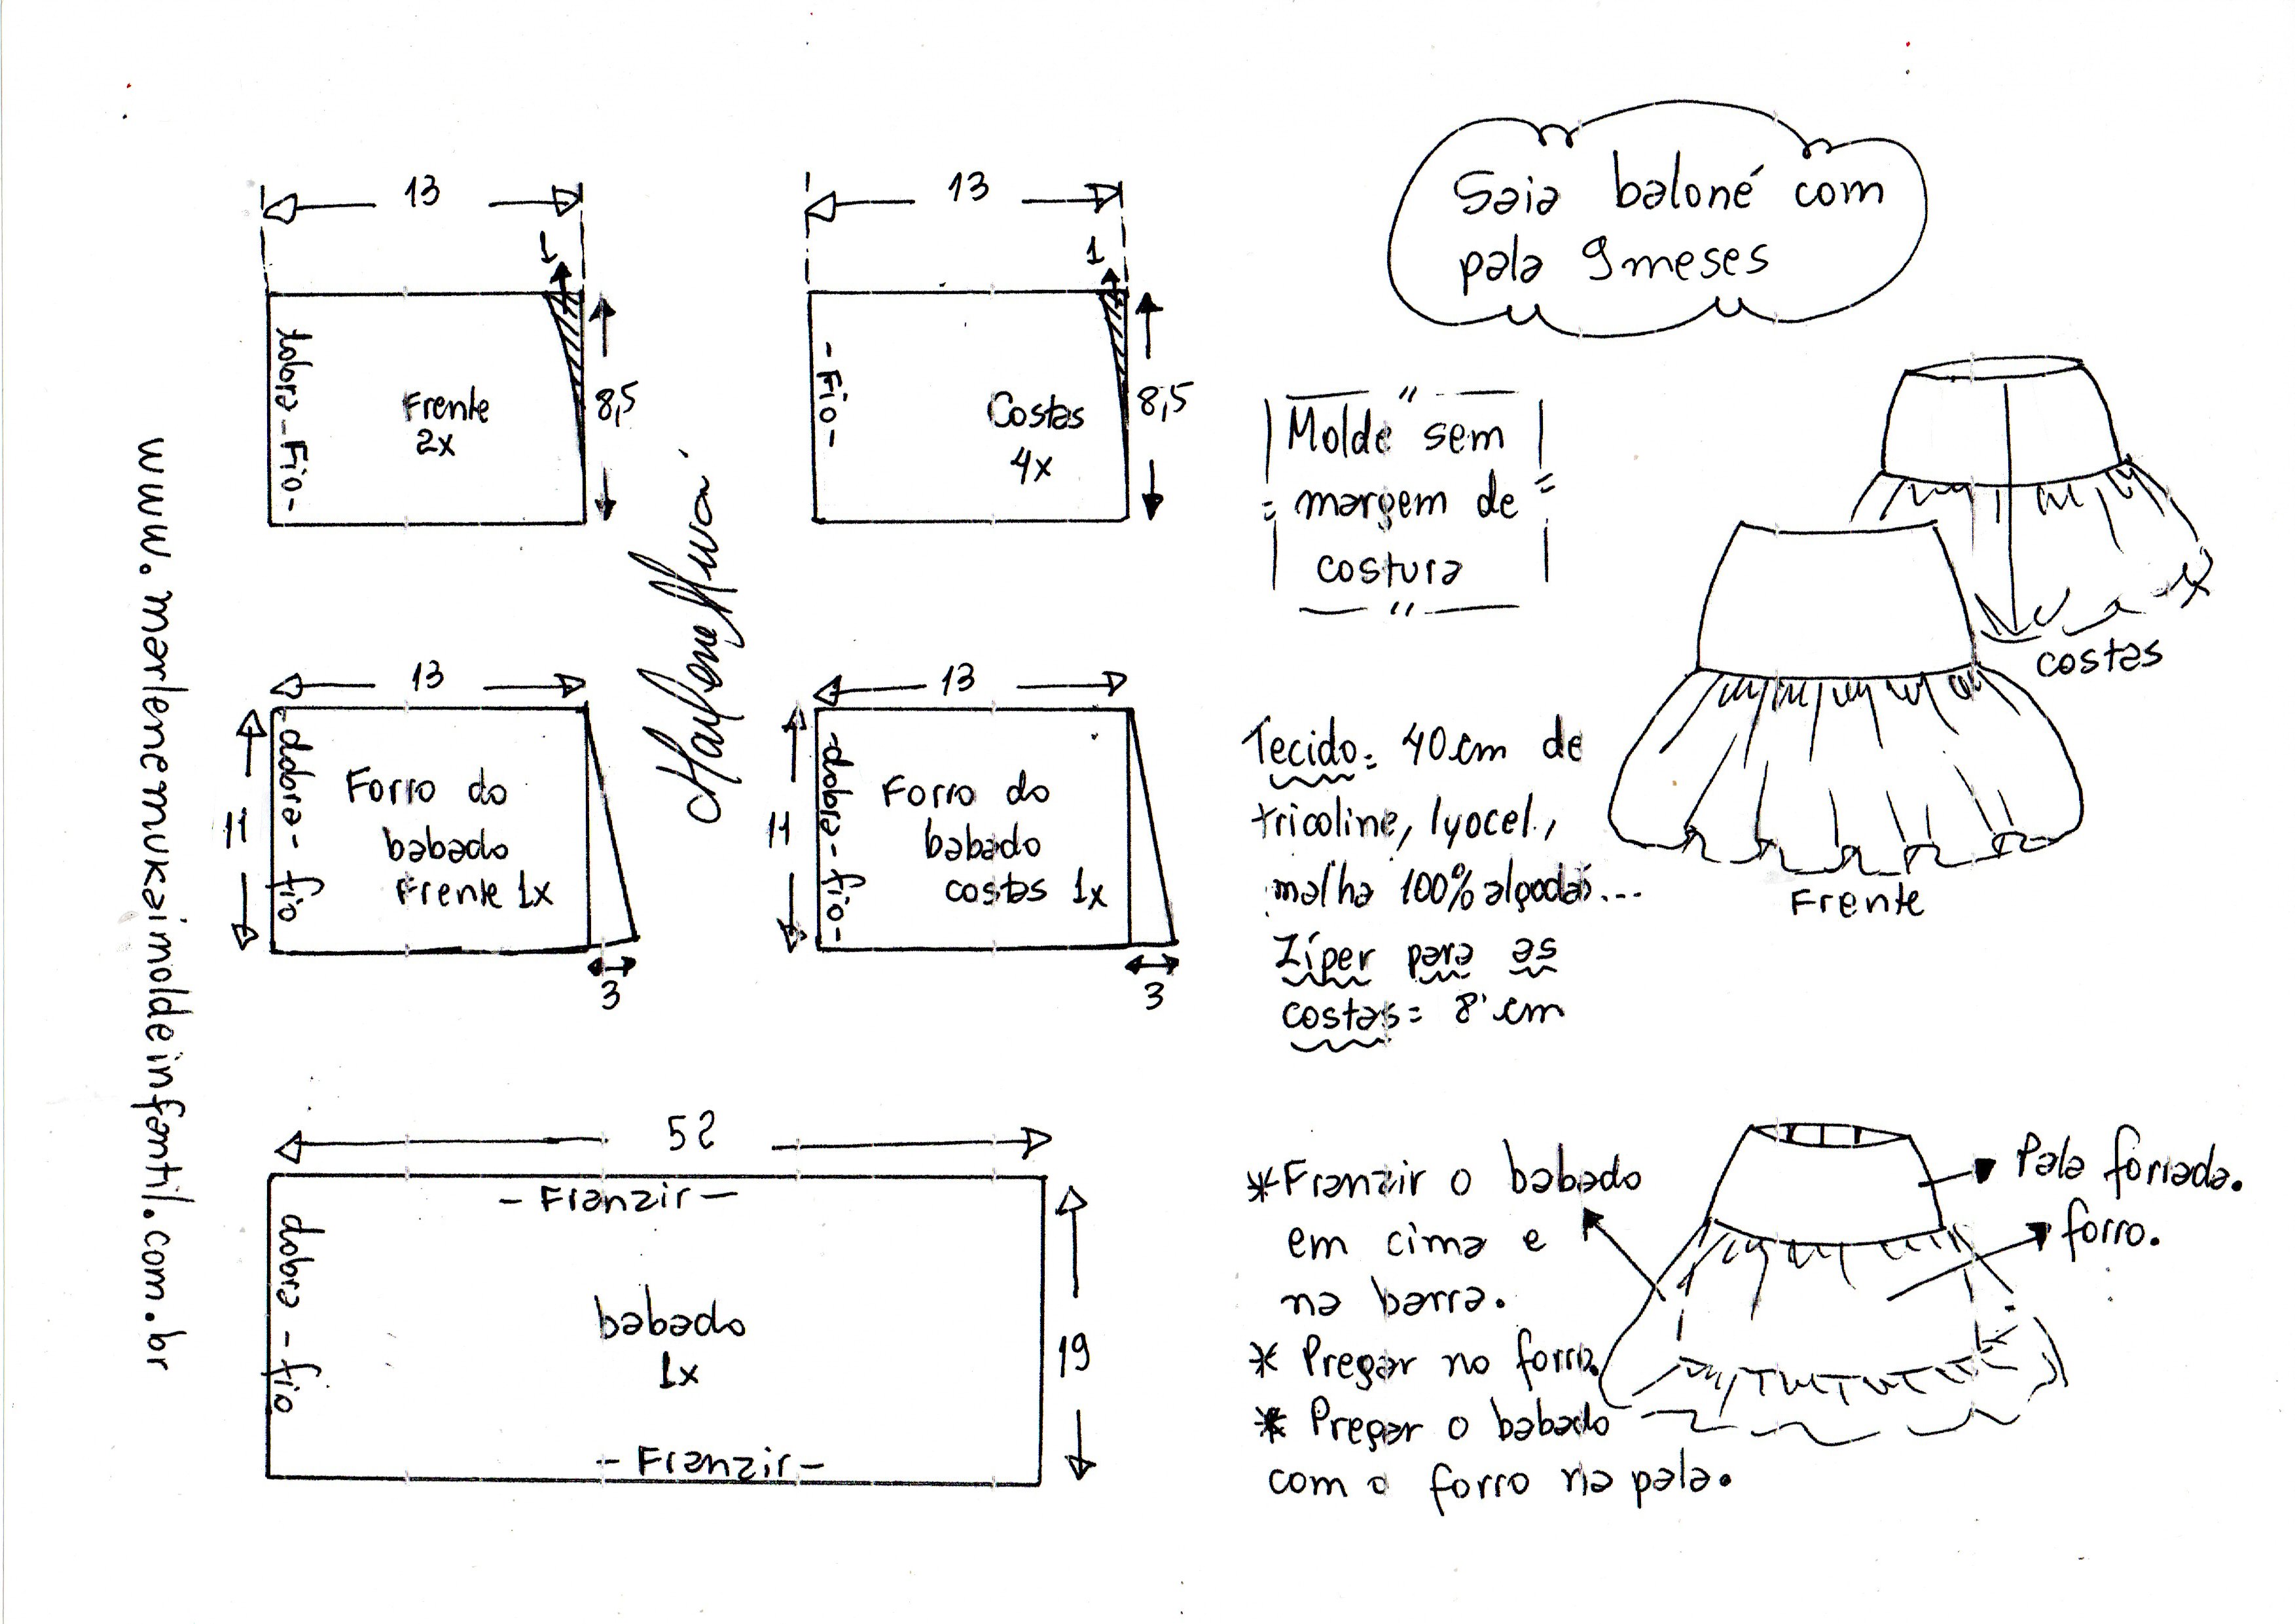 Saia baloné com
pala 9 meses
13
1
dobra - Fio -
Frente
2x
8,5
13
1
- Fio -
Costas
4x
8,5
Molde sem
margem de
costura
costas
Frente
www.marlenemukaimoldeinfantil.com.br
13
11
- dobra - fio
Forro do
babado
Frente 1x
3
13
11
- dobra - fio -
Forro do
babado
costas 1x
3
Tecido: 40 cm de
tricoline, lyocel,
malha 100% algodão...
Zíper para as
costas = 8 cm
52
- Franzir -
dobra - fio
babado
1x
19
- Franzir -
* Franzir o babado
em cima e
na barra.
* Pregar no forro.
* Pregar o babado
com o forro na pala.
Pala forrada.
forro.